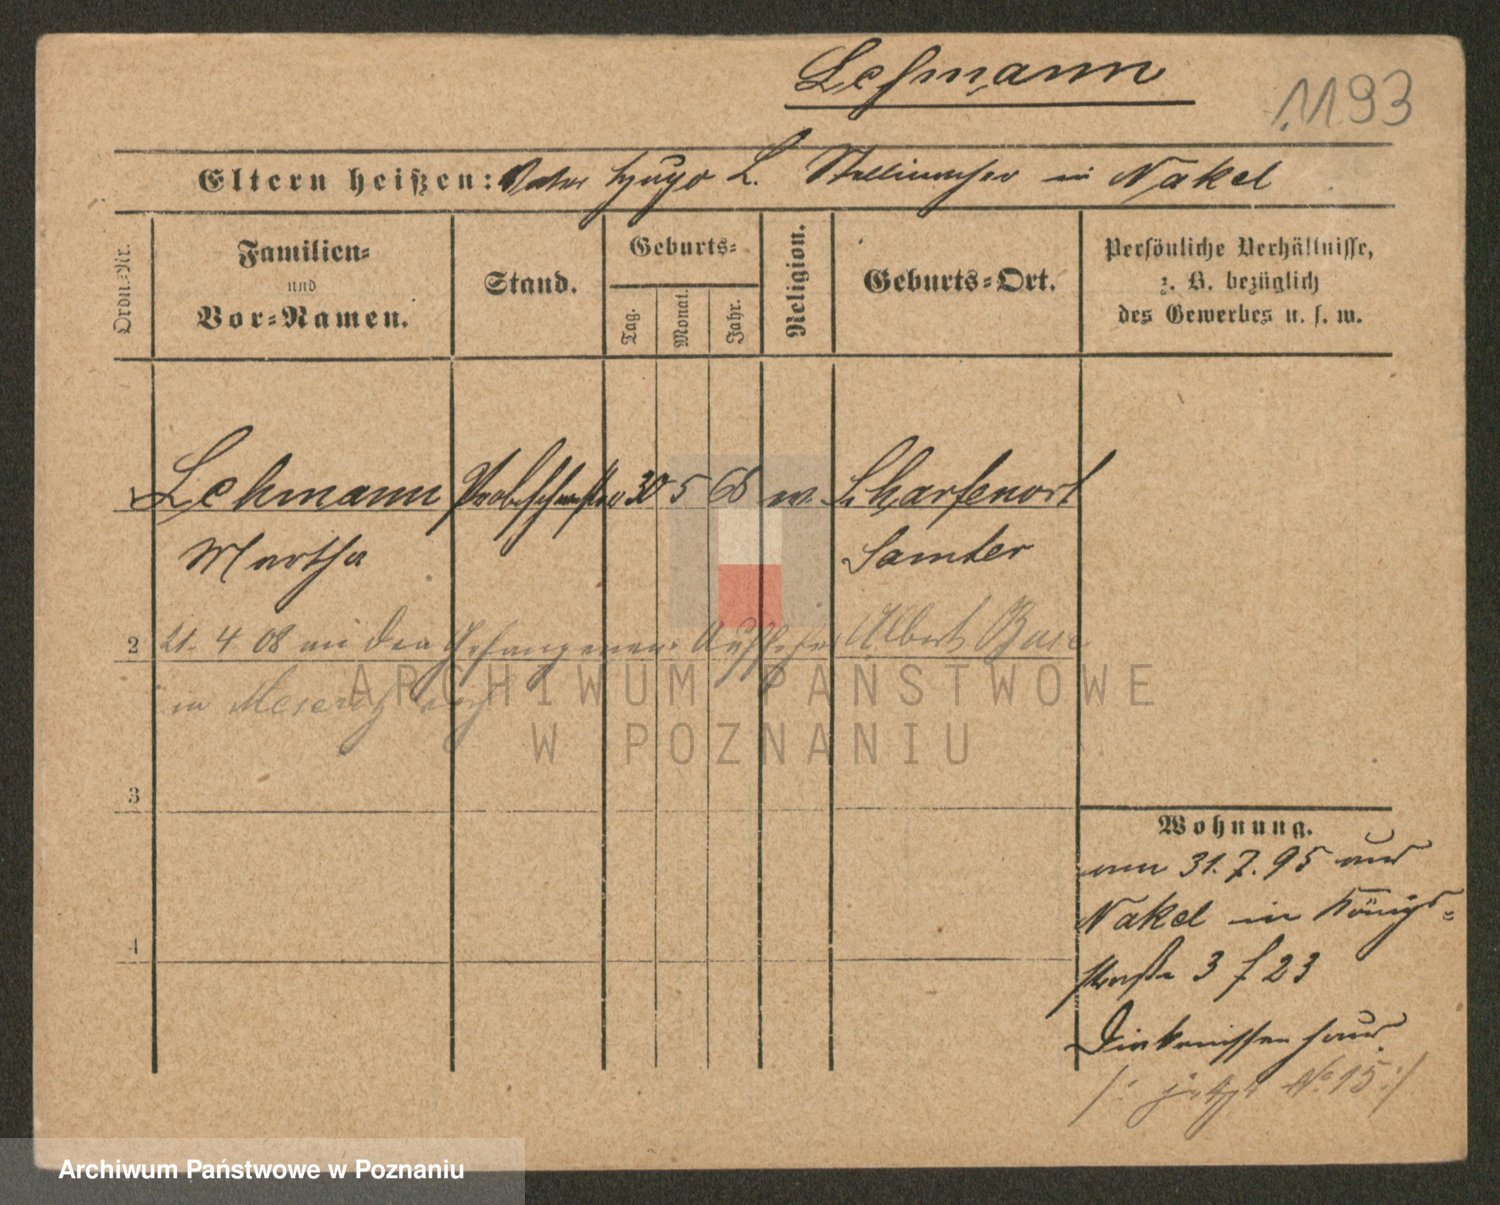 Lehmann
1193
Eltern heißen: Vater Hugo L. Stellmacher in Nakel
Ordn.-Nr.
Familien-
und
Vor-Namen.
Stand.
Geburts-
Tag.
Monat.
Jahr.
Religion.
Geburts-Ort.
Persönliche Verhältnisse,
z. B. bezüglich
des Gewerbes u. s. w.
1 Lehmann Probeschwester 30 5 68 ev. Scharfenort
Martha Samter
2 21. 4. 08 an den Gefangenen-Aufseher Albert
in Meseritz
3
4
Wohnung.
am 31. 7. 95 aus
Nakel in Königs-
straße 3 f 23
Diakonissenhaus.
/: jetzt No 15 :/
ARCHIWUM PAŃSTWOWE
W POZNANIU
Archiwum Państwowe w Poznaniu